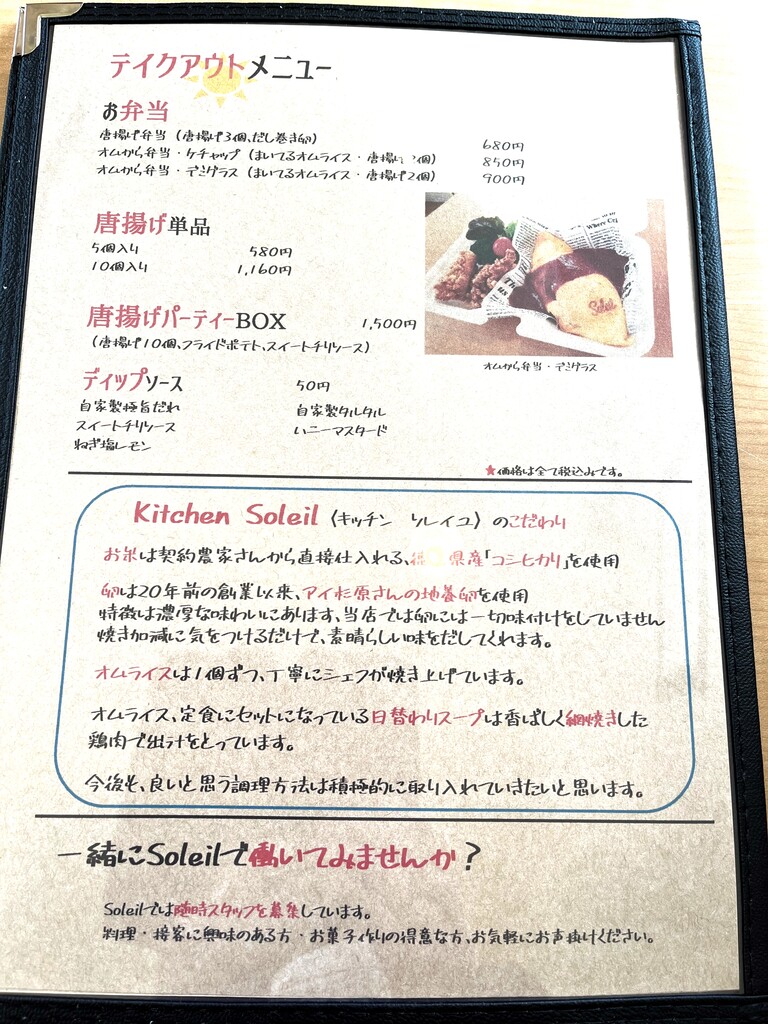 テイクアウトメニュー
お弁当
唐揚げ弁当（唐揚げ3個、だし巻き卵） 680円
オムから弁当・ケチャップ（まいてるオムライス・唐揚げ 個） 850円
オムから弁当・デミグラス（まいてるオムライス・唐揚げ2個） 900円
唐揚げ単品
5個入り 580円
10個入り 1,160円
唐揚げパーティーBOX 1,500円
（唐揚げ10個、フライドポテト、スイートチリソース）
オムから弁当・デミグラス
ディップソース 50円
自家製極旨だれ 自家製タルタル
スイートチリソース ハニーマスタード
ねぎ塩レモン
★価格は全て税込みです。
Kitchen Soleil〈キッチン ソレイユ〉のこだわり
お米は契約農家さんから直接仕入れる、県産「コシヒカリ」を使用
卵は20年前の創業以来、アイ杉原さんの地養卵を使用
特徴は濃厚な味わいにあります、当店では卵には一切味付けをしていません
焼き加減に気をつけるだけで、素晴らしい味をだしてくれます。
オムライスは1個ずつ、丁寧にシェフが焼き上げています。
オムライス、定食にセットになっている日替わりスープは香ばしく網焼きした
鶏肉で出汁をとっています。
今後も、良いと思う調理方法は積極的に取り入れていきたいと思います。
一緒にSoleilで働いてみませんか？
Soleilでは随時スタッフを募集しています。
料理・接客に興味のある方・お菓子作りの得意な方、お気軽にお声掛けください。